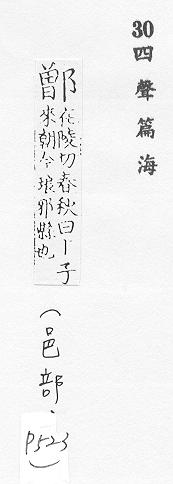 30四聲篇海
鄫
在陵切春秋曰卜子
來朝今琅那縣也
(邑部、
P523)